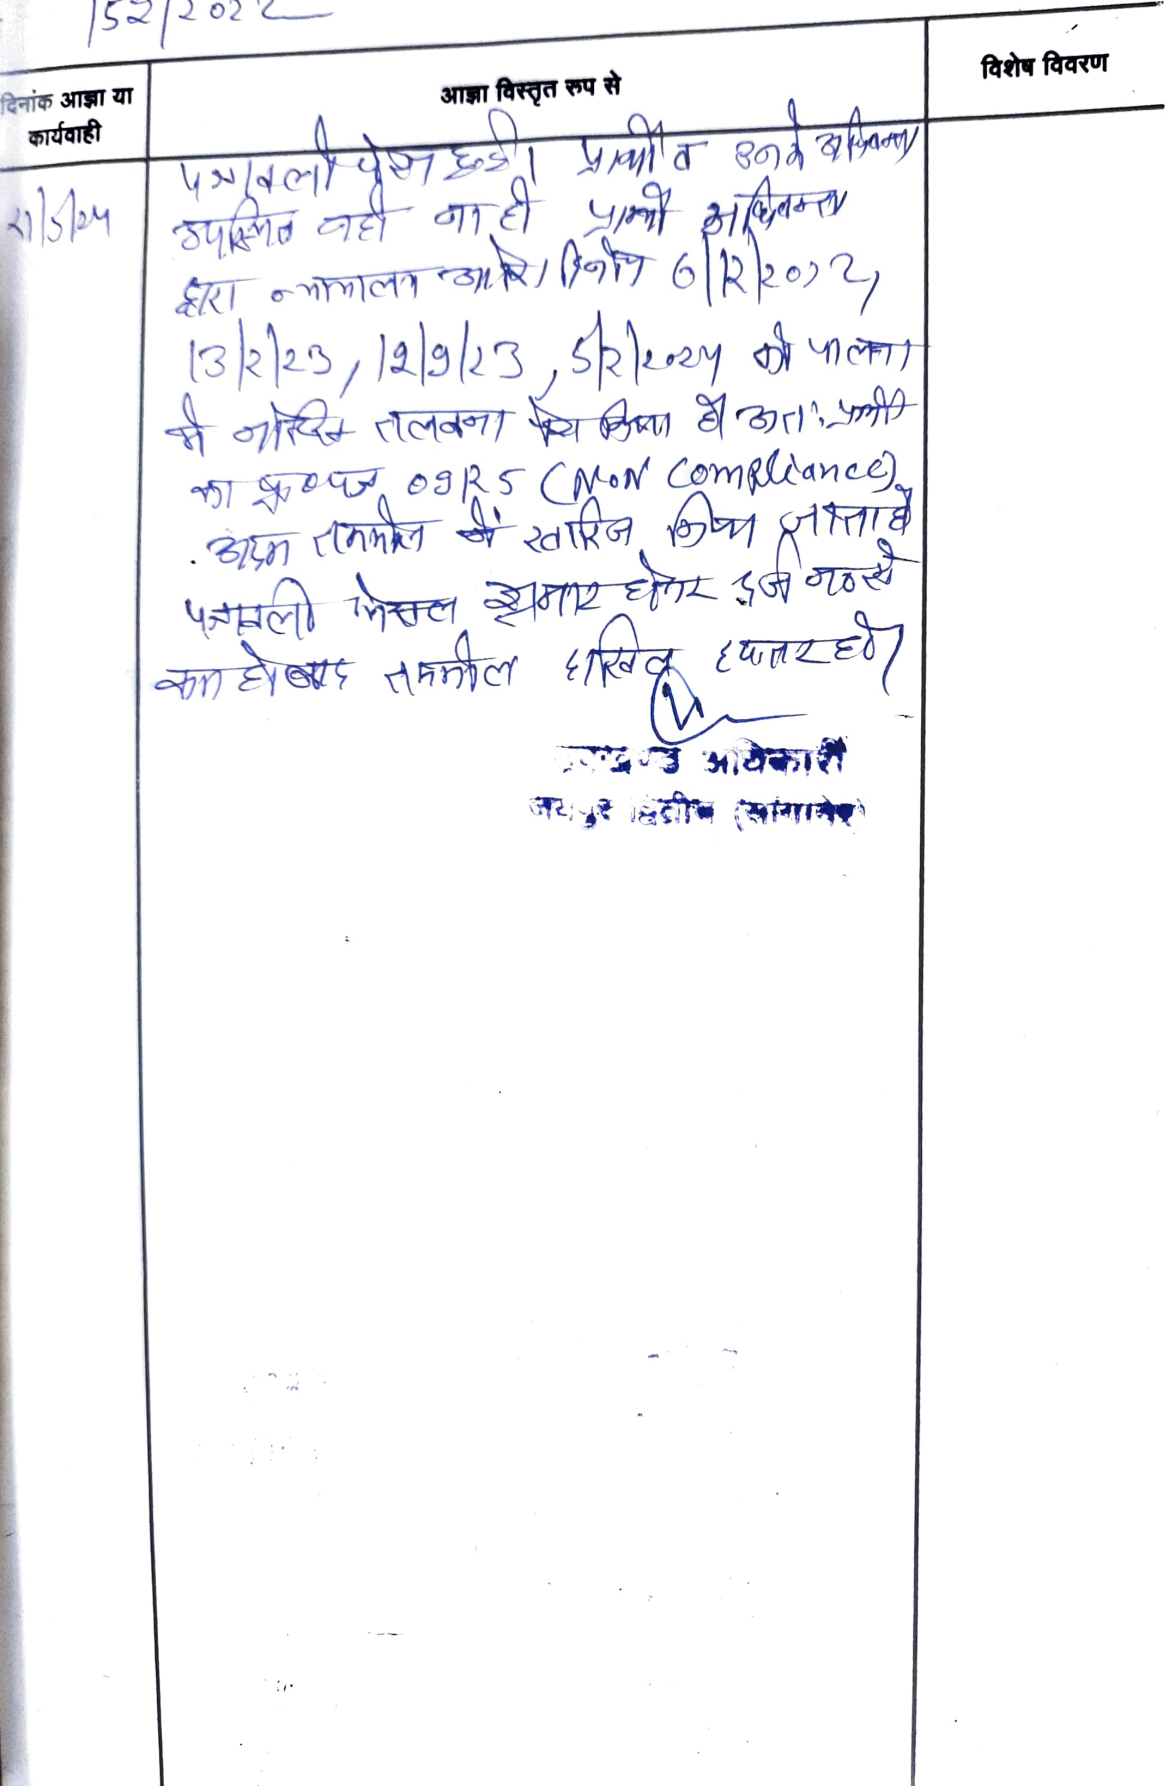 152/2022
दिनांक आज्ञा या
कार्यवाही
आज्ञा विस्तृत रूप से
विशेष विवरण
पत्रावली पेश हुई। प्रार्थी व उनके अधिवक्ता
उपस्थित नही ना ही प्रार्थी अधिवक्ता
द्वारा न्यायालय आदेश दिनांक 6/12/2022,
13/2/23, 12/9/23, 5/2/2024 की पालना
मे नोटिस तलवाना पेश किया है अतः प्रार्थी
का 09R5 (Non Compliance)
अदम तामील में खारिज किया जाता है
पत्रावली फैसल शुमार होकर दर्ज न० से
कम हो बाद तामील दाखिल दफ्तर हो।
उपखण्ड अधिकारी
जयपुर द्वितीय (सांगानेर)